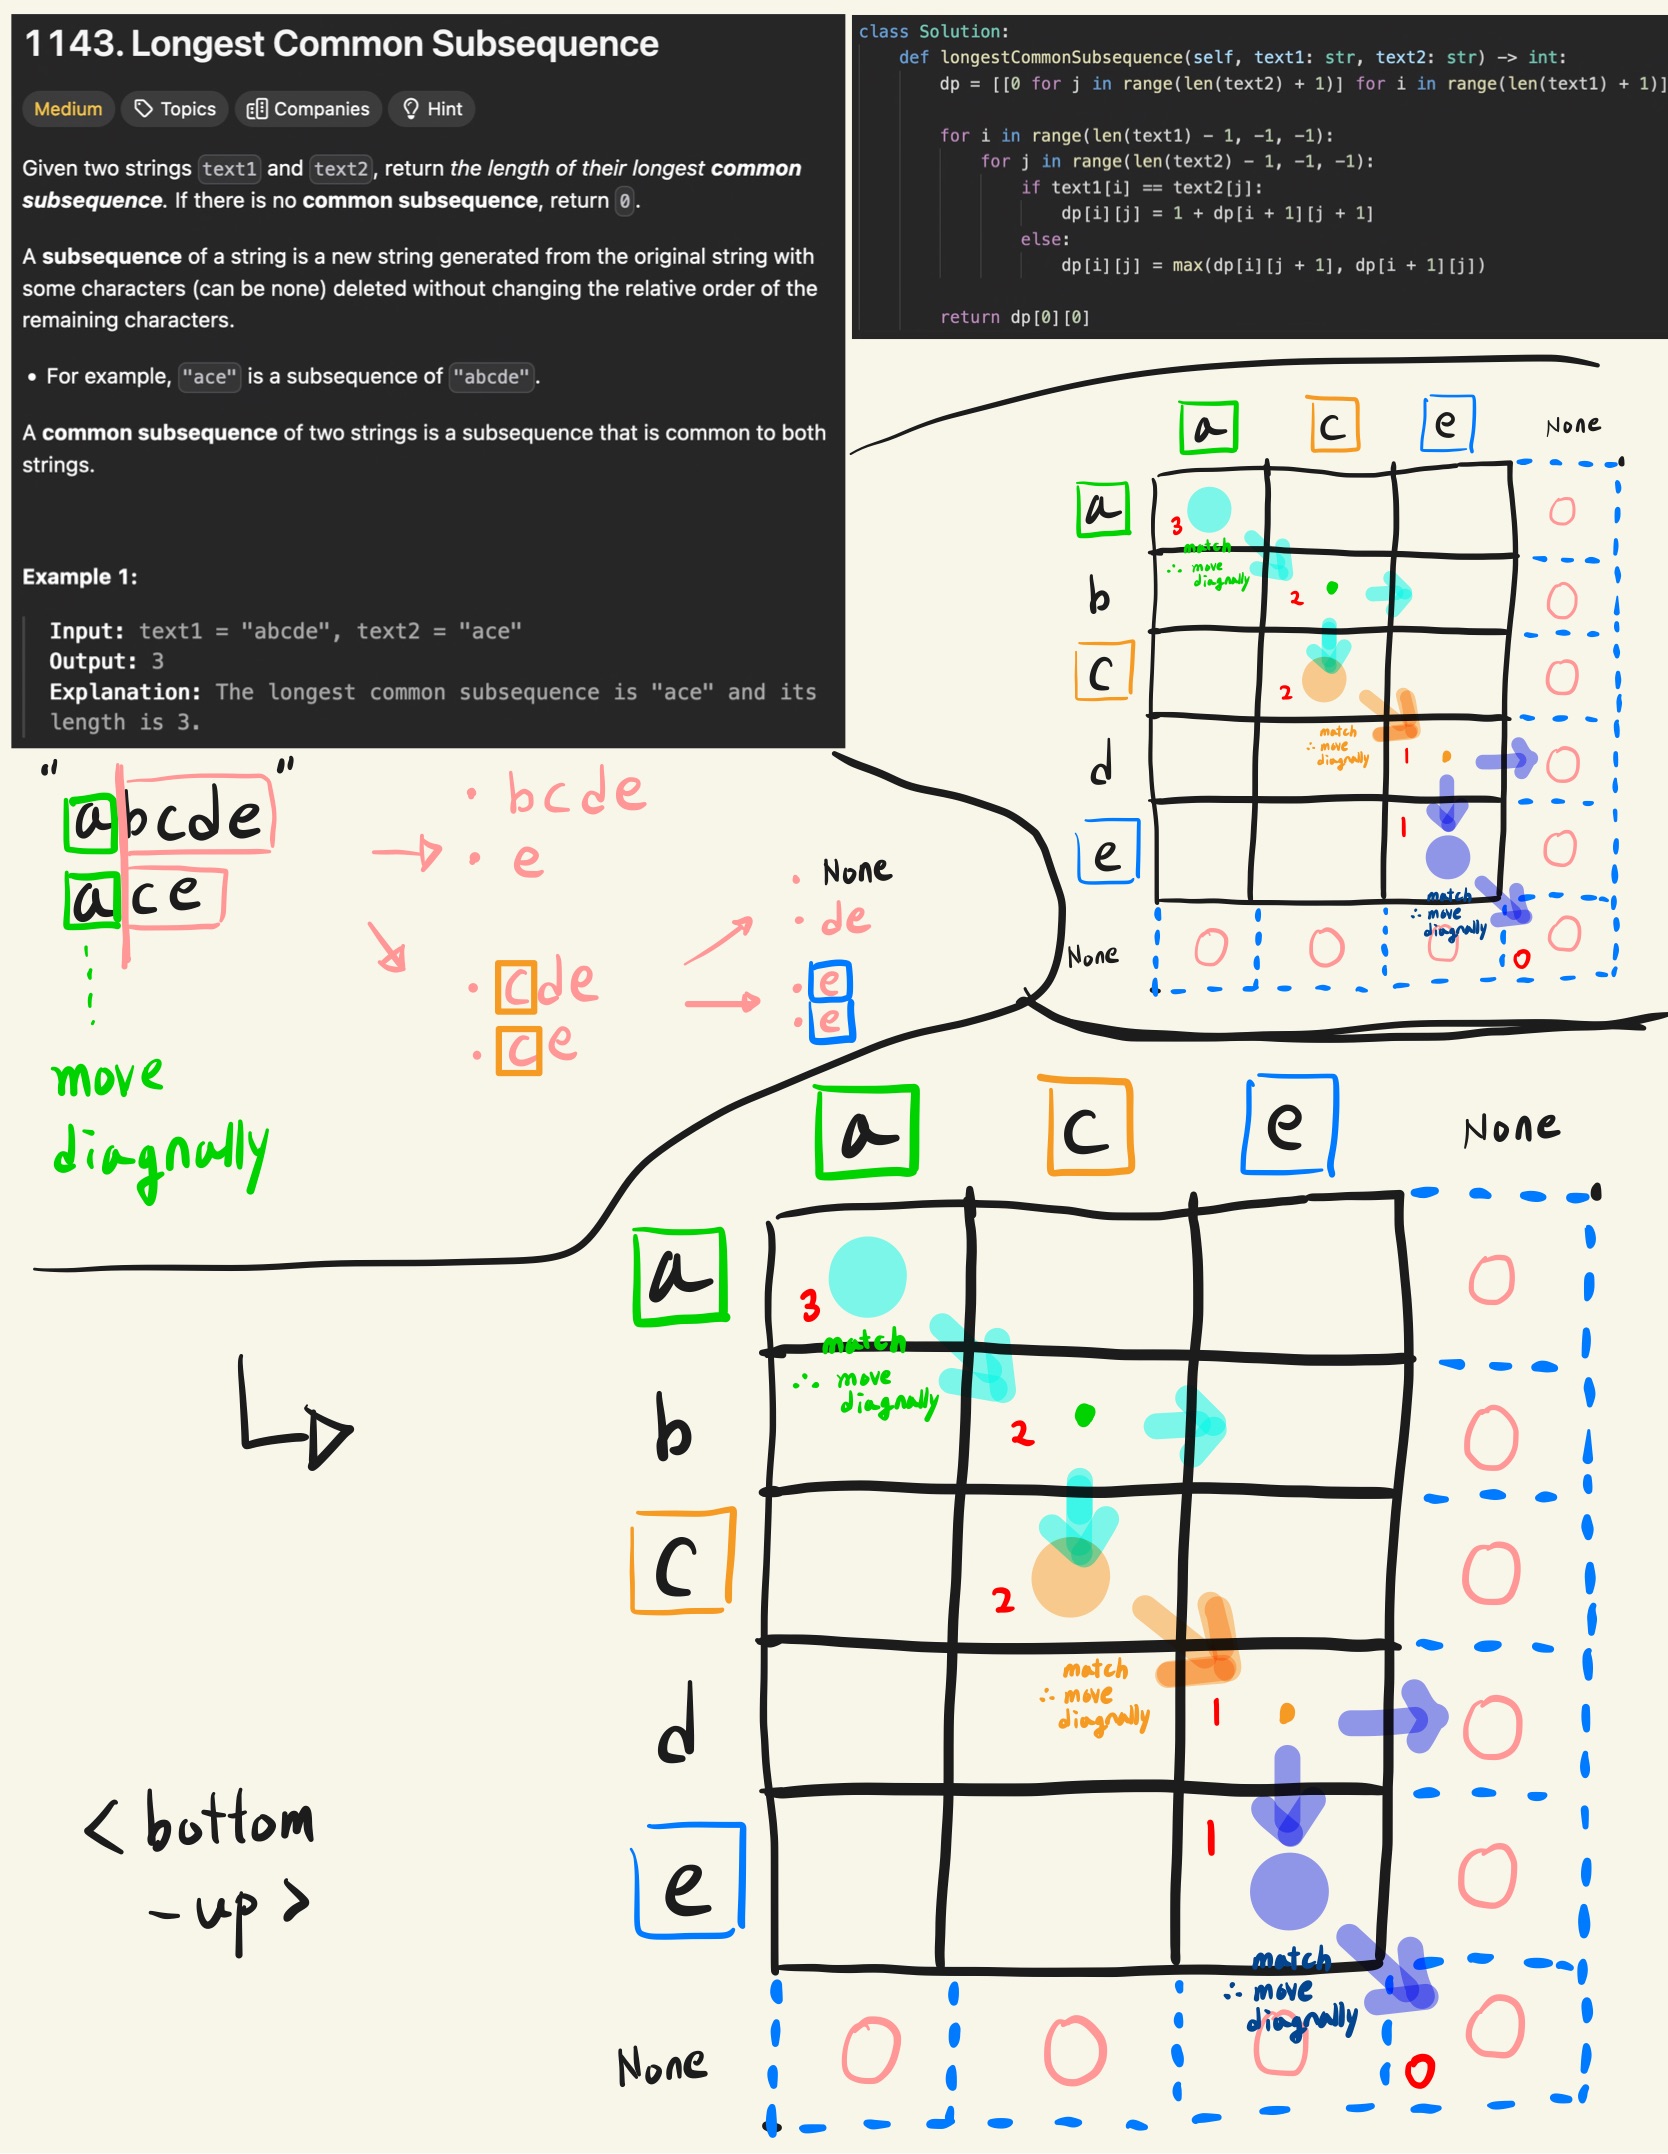 1143. Longest Common Subsequence
Medium Topics Companies Hint
Given two strings text1 and text2, return the length of their longest common
subsequence. If there is no common subsequence, return 0.
A subsequence of a string is a new string generated from the original string with
some characters (can be none) deleted without changing the relative order of the
remaining characters.
• For example, "ace" is a subsequence of "abcde".
A common subsequence of two strings is a subsequence that is common to both
strings.
Example 1:
Input: text1 = "abcde", text2 = "ace"
Output: 3
Explanation: The longest common subsequence is "ace" and its
length is 3.
class Solution:
def longestCommonSubsequence(self, text1: str, text2: str) -> int:
dp = [[0 for j in range(len(text2) + 1)] for i in range(len(text1) + 1)]
for i in range(len(text1) - 1, -1, -1):
for j in range(len(text2) - 1, -1, -1):
if text1[i] == text2[j]:
dp[i][j] = 1 + dp[i + 1][j + 1]
else:
dp[i][j] = max(dp[i][j + 1], dp[i + 1][j])
return dp[0][0]
a c e None
a 3 0
match
∴ move
diagnally
b 2 0
c 2 0
match
∴ move
diagnally
d 1 0
e 1 0
match
∴ move
diagnally
None 0 0 0 0 0
"abcde"
ace
move
diagnally
• bcde
• e
• cde
• ce
• None
• de
• e
• e
< bottom
-up >
a c e None
a 3 0
match
∴ move
diagnally
b 2 0
c 2 0
match
∴ move
diagnally
d 1 0
e 1 0
match
∴ move
diagnally
None 0 0 0 0 0